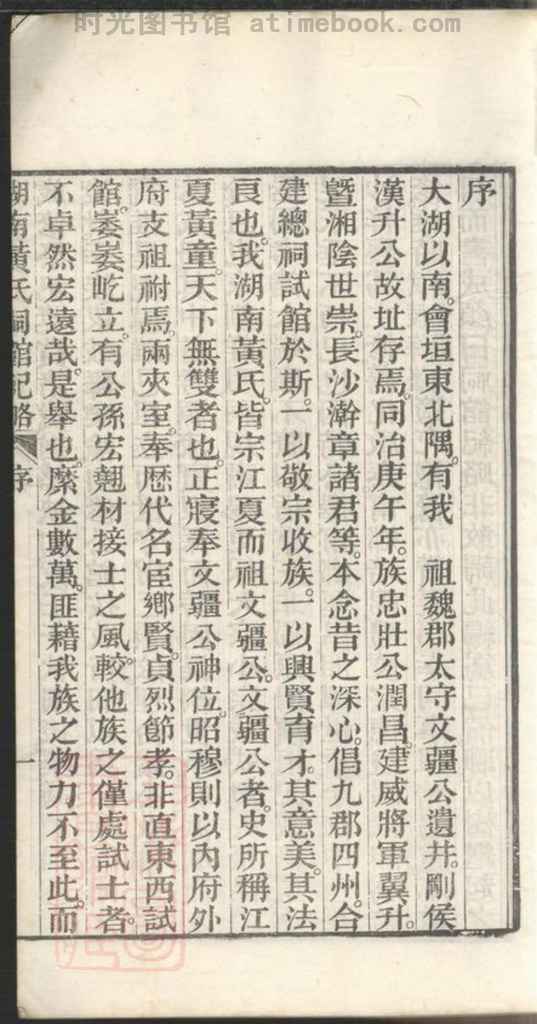 时光图书馆 atimebook.com
序
大湖以南。會垣東北隅。有我　祖魏郡太守文疆公遺井。剛侯
漢升公故址存焉。同治庚午年。族忠壯公潤昌。建威將軍翼升。
曁湘陰世崇。長沙澣章諸君等。本念昔之深心。倡九郡四州。合
建總祠試館於斯。一以敬宗收族。一以興賢育才。其意美。其法
良也。我湖南黃氏。皆宗江夏而祖文疆公。文疆公者。史所稱江
夏黃童。天下無雙者也。正寢奉文疆公神位。昭穆則以內府外
府支祖祔焉。兩夾室。奉歷代名宦鄕賢。貞烈節孝。非直東西試
館。崣崣屹立。有公孫宏翹材接士之風。較他族之僅處試士者。
不卓然宏遠哉。是舉也。縻金數萬。匪藉我族之物力不至此。而
湖南黃氏祠館記略　序　一